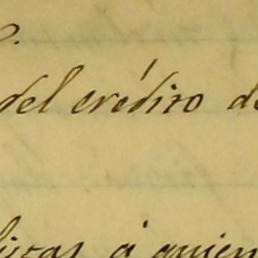 del crédito de
á quien